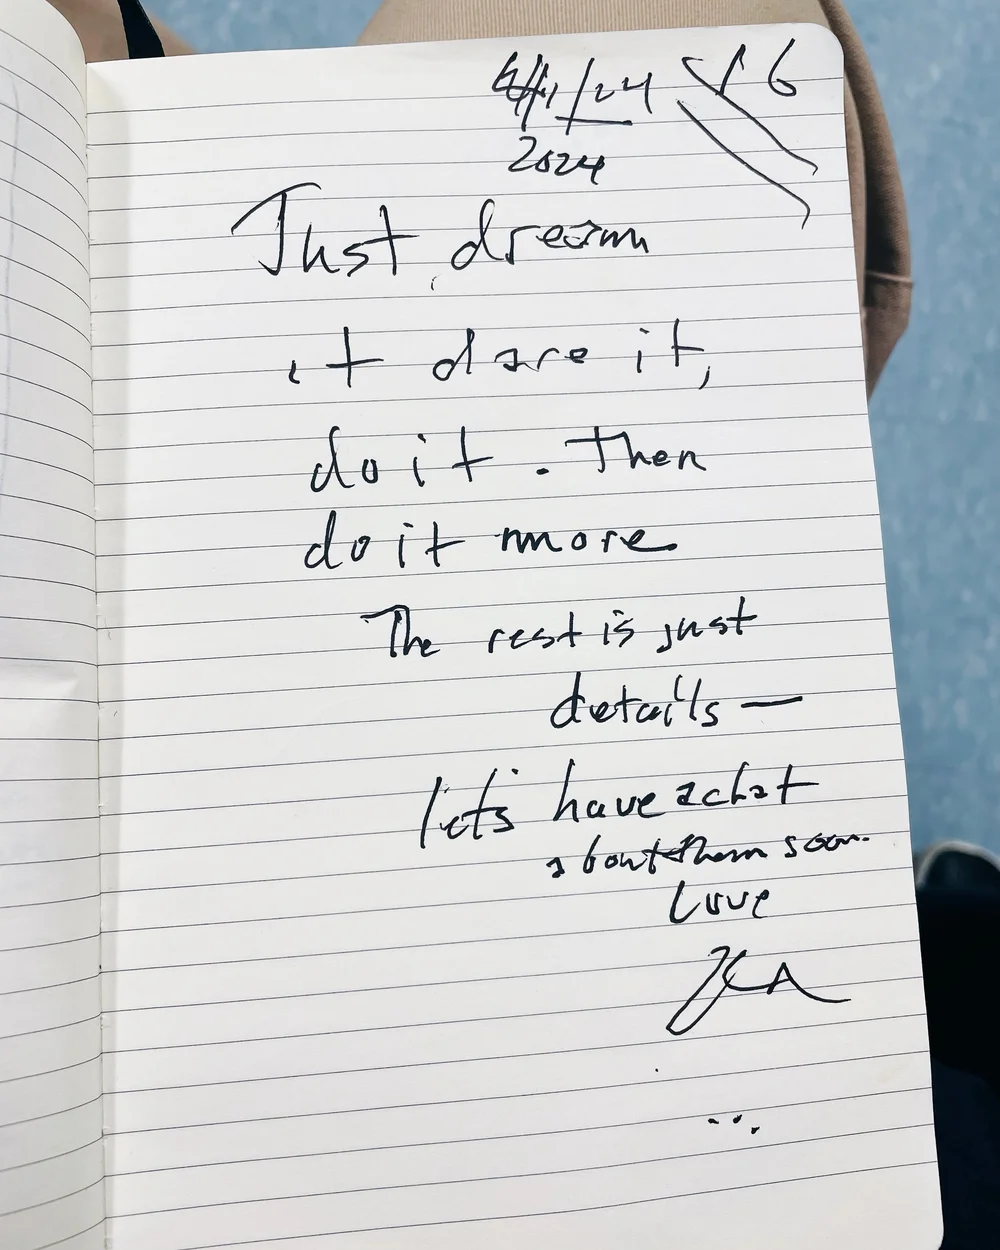 2024
Just dream
it dare it,
do it. Then
do it more
The rest is just
details —
let's have a chat
about them soon.
Love